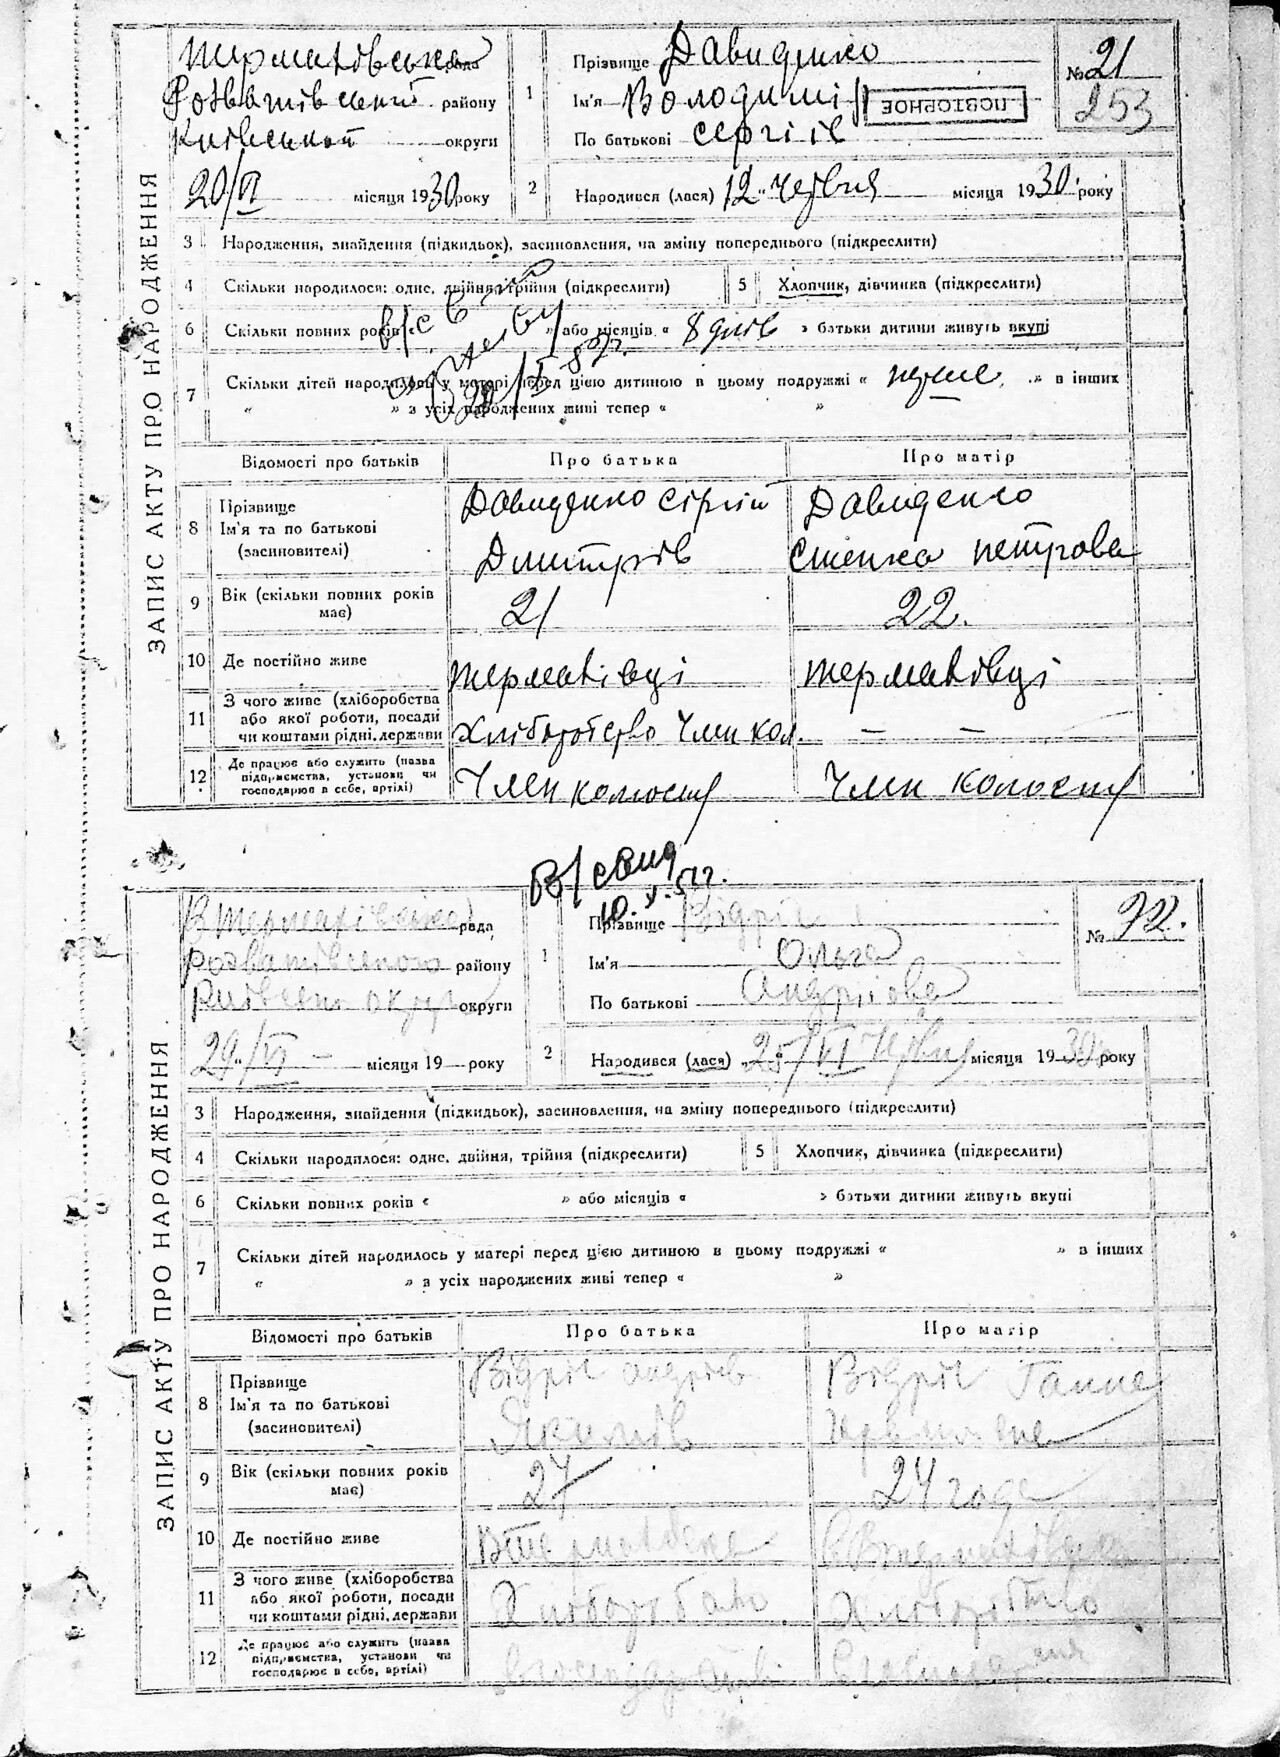 ЗАПИС АКТУ ПРО НАРОДЖЕННЯ
Термахівська рада
Розважівський району
Київської округи
20/VI місяця 1930 року
1 Прізвище Давиденко
Ім'я Володимір
По батькові Сергіїв
ПОВТОРНОЕ
№ 21
253
2 Народився (лася) 12 „ червня місяця 1930. року
3 Народження, знайдення (підкидьок), засиновлення, на зміну попереднього (підкреслити)
4 Скільки народилося: одне, двійня, трійня (підкреслити) 5 Хлопчик, дівчинка (підкреслити)
6 Скільки повних років « » або місяців « 8 днів » батьки дитини живуть вкупі
7 Скільки дітей народилось у матері перед цією дитиною в цьому подружжі « перше » в інших
« » з усіх народжених живі тепер « »
Відомості про батьків Про батька Про матір
8 Прізвище Ім'я та по батькові (засиновителі) Давиденко Сергій Давиденко
Дмитрів петрова
9 Вік (скільки повних років має) 21 22.
10 Де постійно живе Термахівці Термахівці
11 З чого живе (хліборобства або якої роботи, посади чи коштами рідні, держави Хліборобство Член кол. — —
12 Де працює або служить (назва підприємства, установи чи господарює в себе, артілі) Член колоспу Член колоспу
ЗАПИС АКТУ ПРО НАРОДЖЕННЯ
10.V.51г.
В Термахівська рада
Розважівського району
Київсько округ округи
29/VI — місяця 19 — року
1 Прізвище Відрік
Ім'я Ольга
По батькові Андріїова
№ 22.
2 Народився (лася) „25/VI червня місяця 1930 року
3 Народження, знайдення (підкидьок), засиновлення, на зміну попереднього (підкреслити)
4 Скільки народилося: одне, двійня, трійня (підкреслити) 5 Хлопчик, дівчинка (підкреслити)
6 Скільки повних років « » або місяців « » батьки дитини живуть вкупі
7 Скільки дітей народилось у матері перед цією дитиною в цьому подружжі « » в інших
« » з усіх народжених живі тепер « »
Відомості про батьків Про батька Про матір
8 Прізвище Ім'я та по батькові (засиновителі) Відрік Андрієв Відрік Ганна
Якимів
9 Вік (скільки повних років має) 27 24 года
10 Де постійно живе
11 З чого живе (хліборобства або якої роботи, посади чи коштами рідні, держави Хліборобство
12 Де працює або служить (назва підприємства, установи чи господарює в себе, артілі)